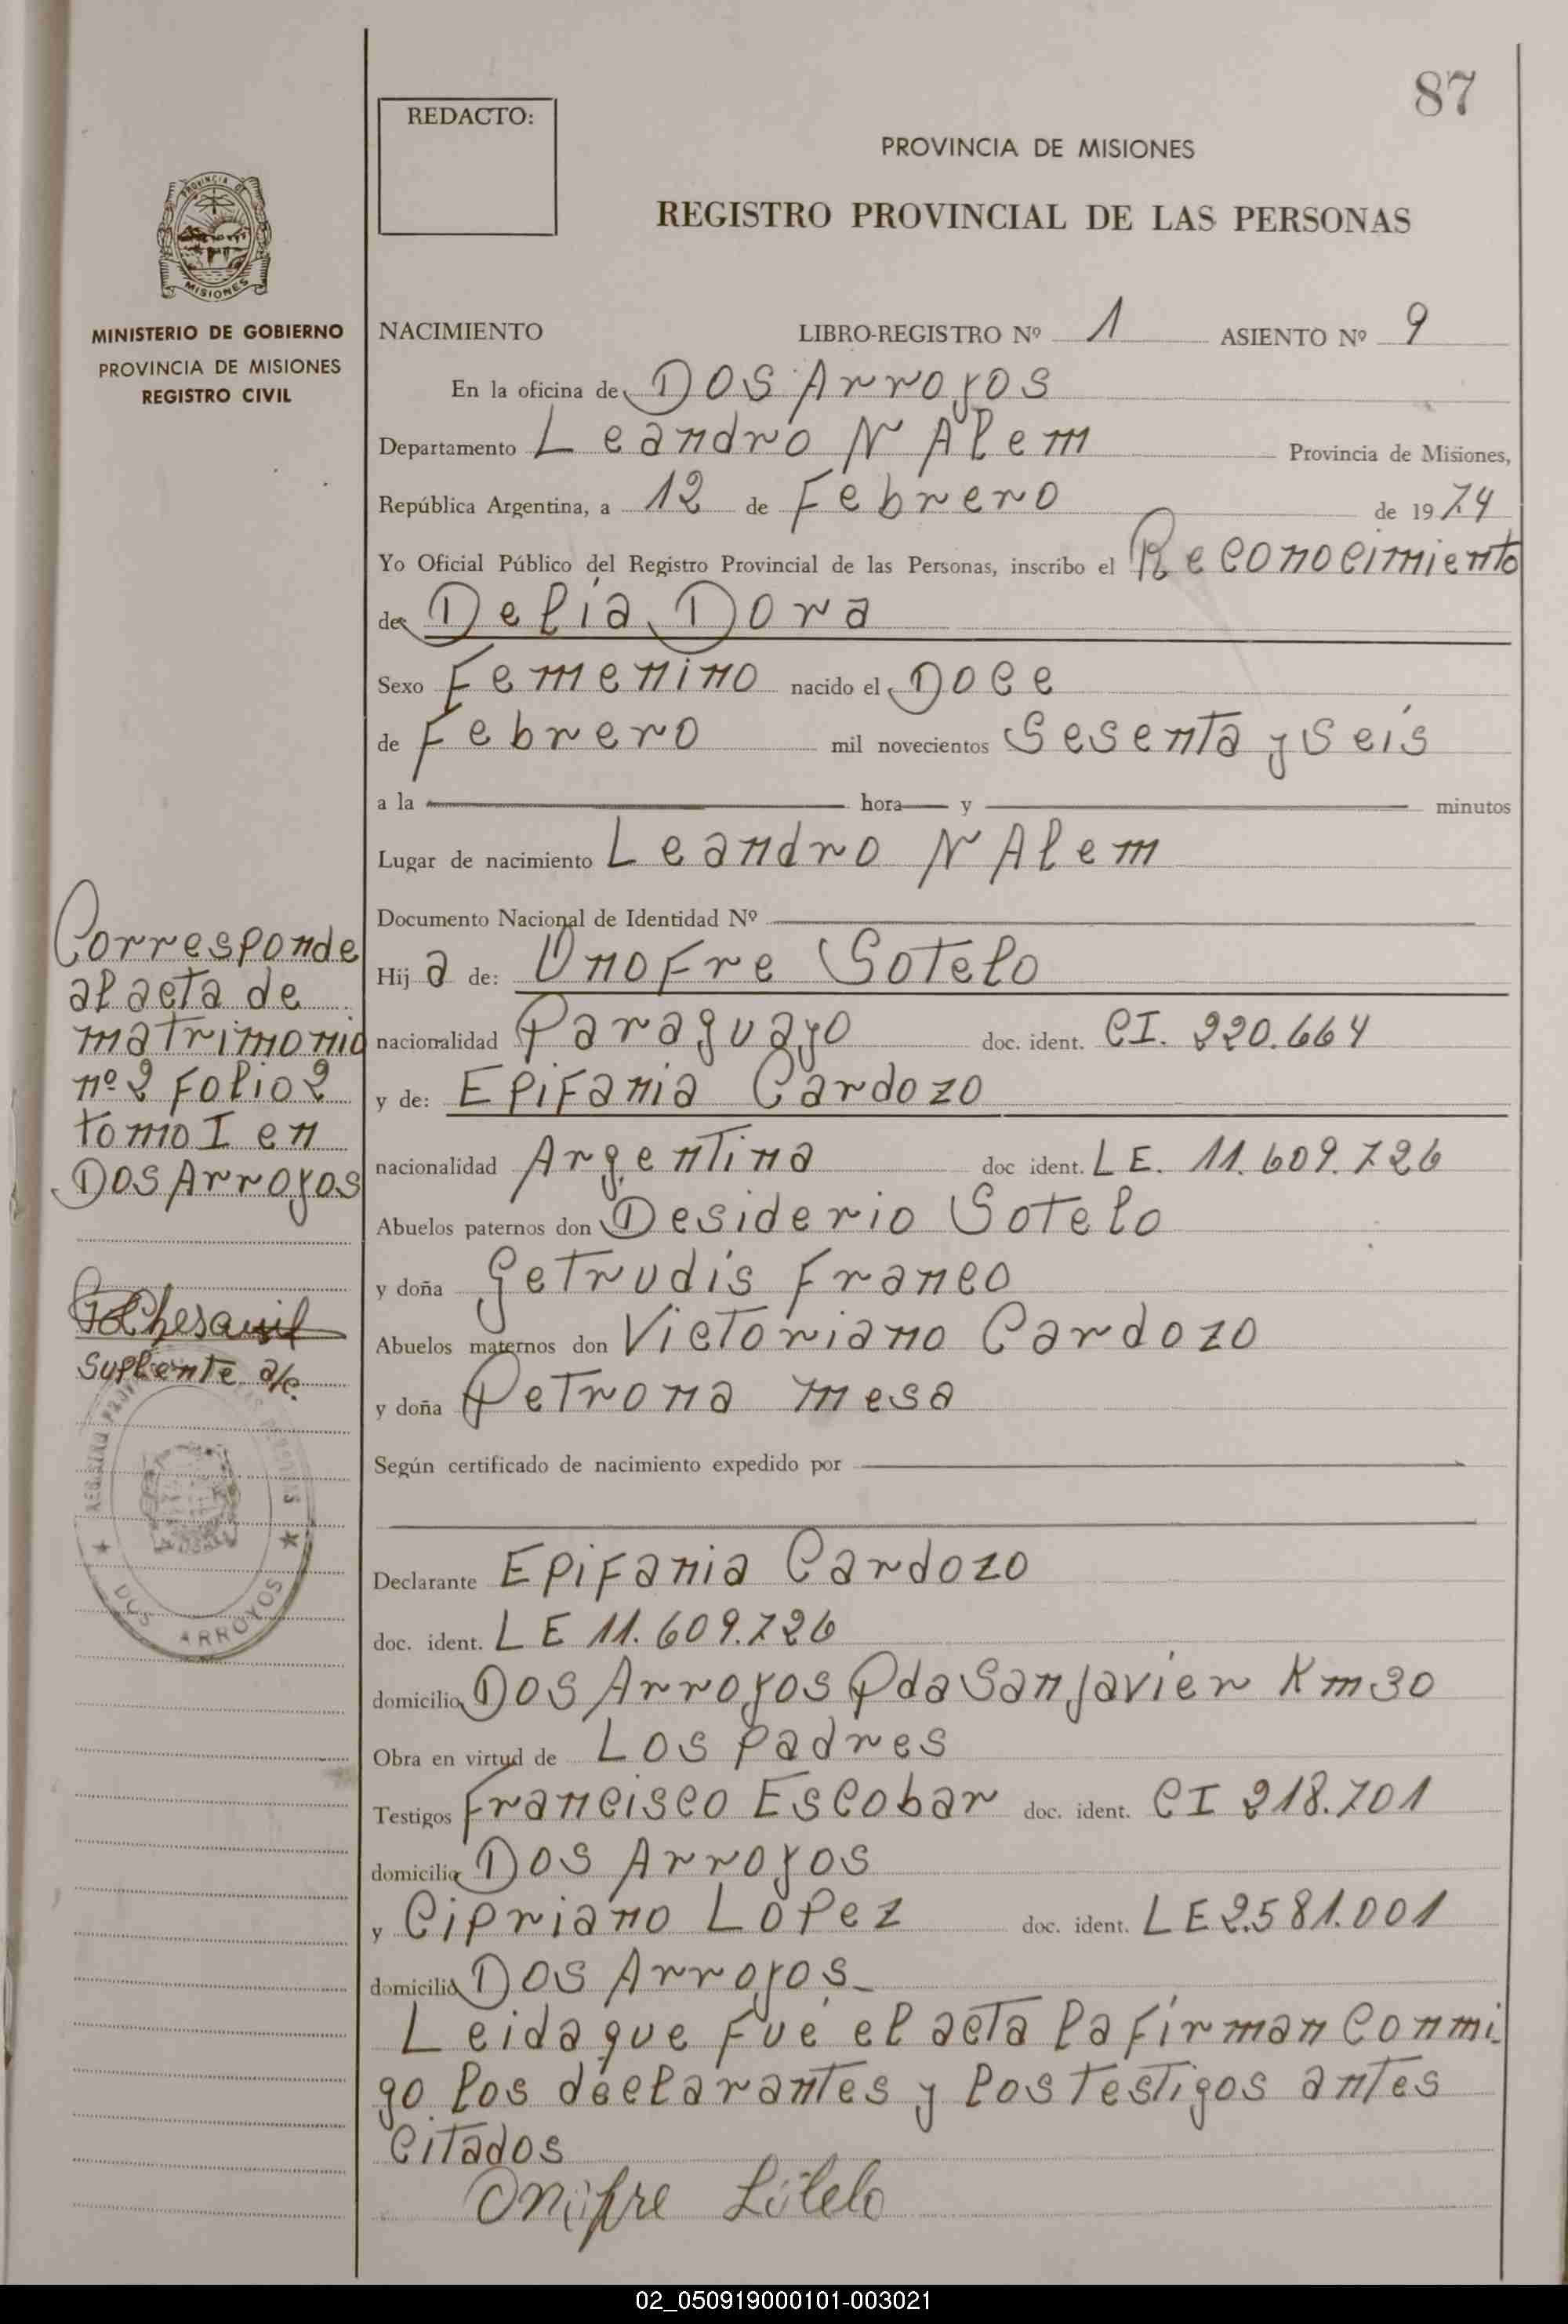 87
REDACTO:
PROVINCIA DE MISIONES
REGISTRO PROVINCIAL DE LAS PERSONAS
PROVINCIA DE
MISIONES
MINISTERIO DE GOBIERNO
PROVINCIA DE MISIONES
REGISTRO CIVIL
NACIMIENTO LIBRO-REGISTRO Nº 1 ASIENTO Nº 9
En la oficina de DOS Arroyos
Departamento Leandro N Alem Provincia de Misiones,
República Argentina, a 12 de Febrero de 1974
Yo Oficial Público del Registro Provincial de las Personas, inscribo el Reconocimiento
de Delia Dora
Sexo Femenino nacido el Doce
de Febrero mil novecientos Sesenta y Seis
a la hora y minutos
Lugar de nacimiento Leandro N Alem
Documento Nacional de Identidad Nº
Hija de: Onofre Sotelo
nacionalidad Paraguayo doc. ident. CI. 220.664
y de: Epifania Cardozo
nacionalidad Argentina doc ident. LE. 11.609.726
Abuelos paternos don Desiderio Sotelo
y doña Getrudis Franco
Abuelos maternos don Victoriano Cardozo
y doña Petrona mesa
Según certificado de nacimiento expedido por
Declarante Epifania Cardozo
doc. ident. LE 11.609.726
domicilio DOS Arroyos Pda San Javier Km 30
Obra en virtud de Los padres
Testigos Francisco Escobar doc. ident. CI 218.701
domicilio DOS Arroyos
y Cipriano Lopez doc. ident. LE 2.581.001
domicilio DOS Arroyos
Leida que fué el acta la firman conmi-
go los declarantes y los testigos antes
citados
Onofre Sotelo
Corresponde
al acta de
matrimonio
nº 2 Folio 2
tomo I en
DOS Arroyos
Suplente a/c.
DOS ARROYOS
02_050919000101-003021